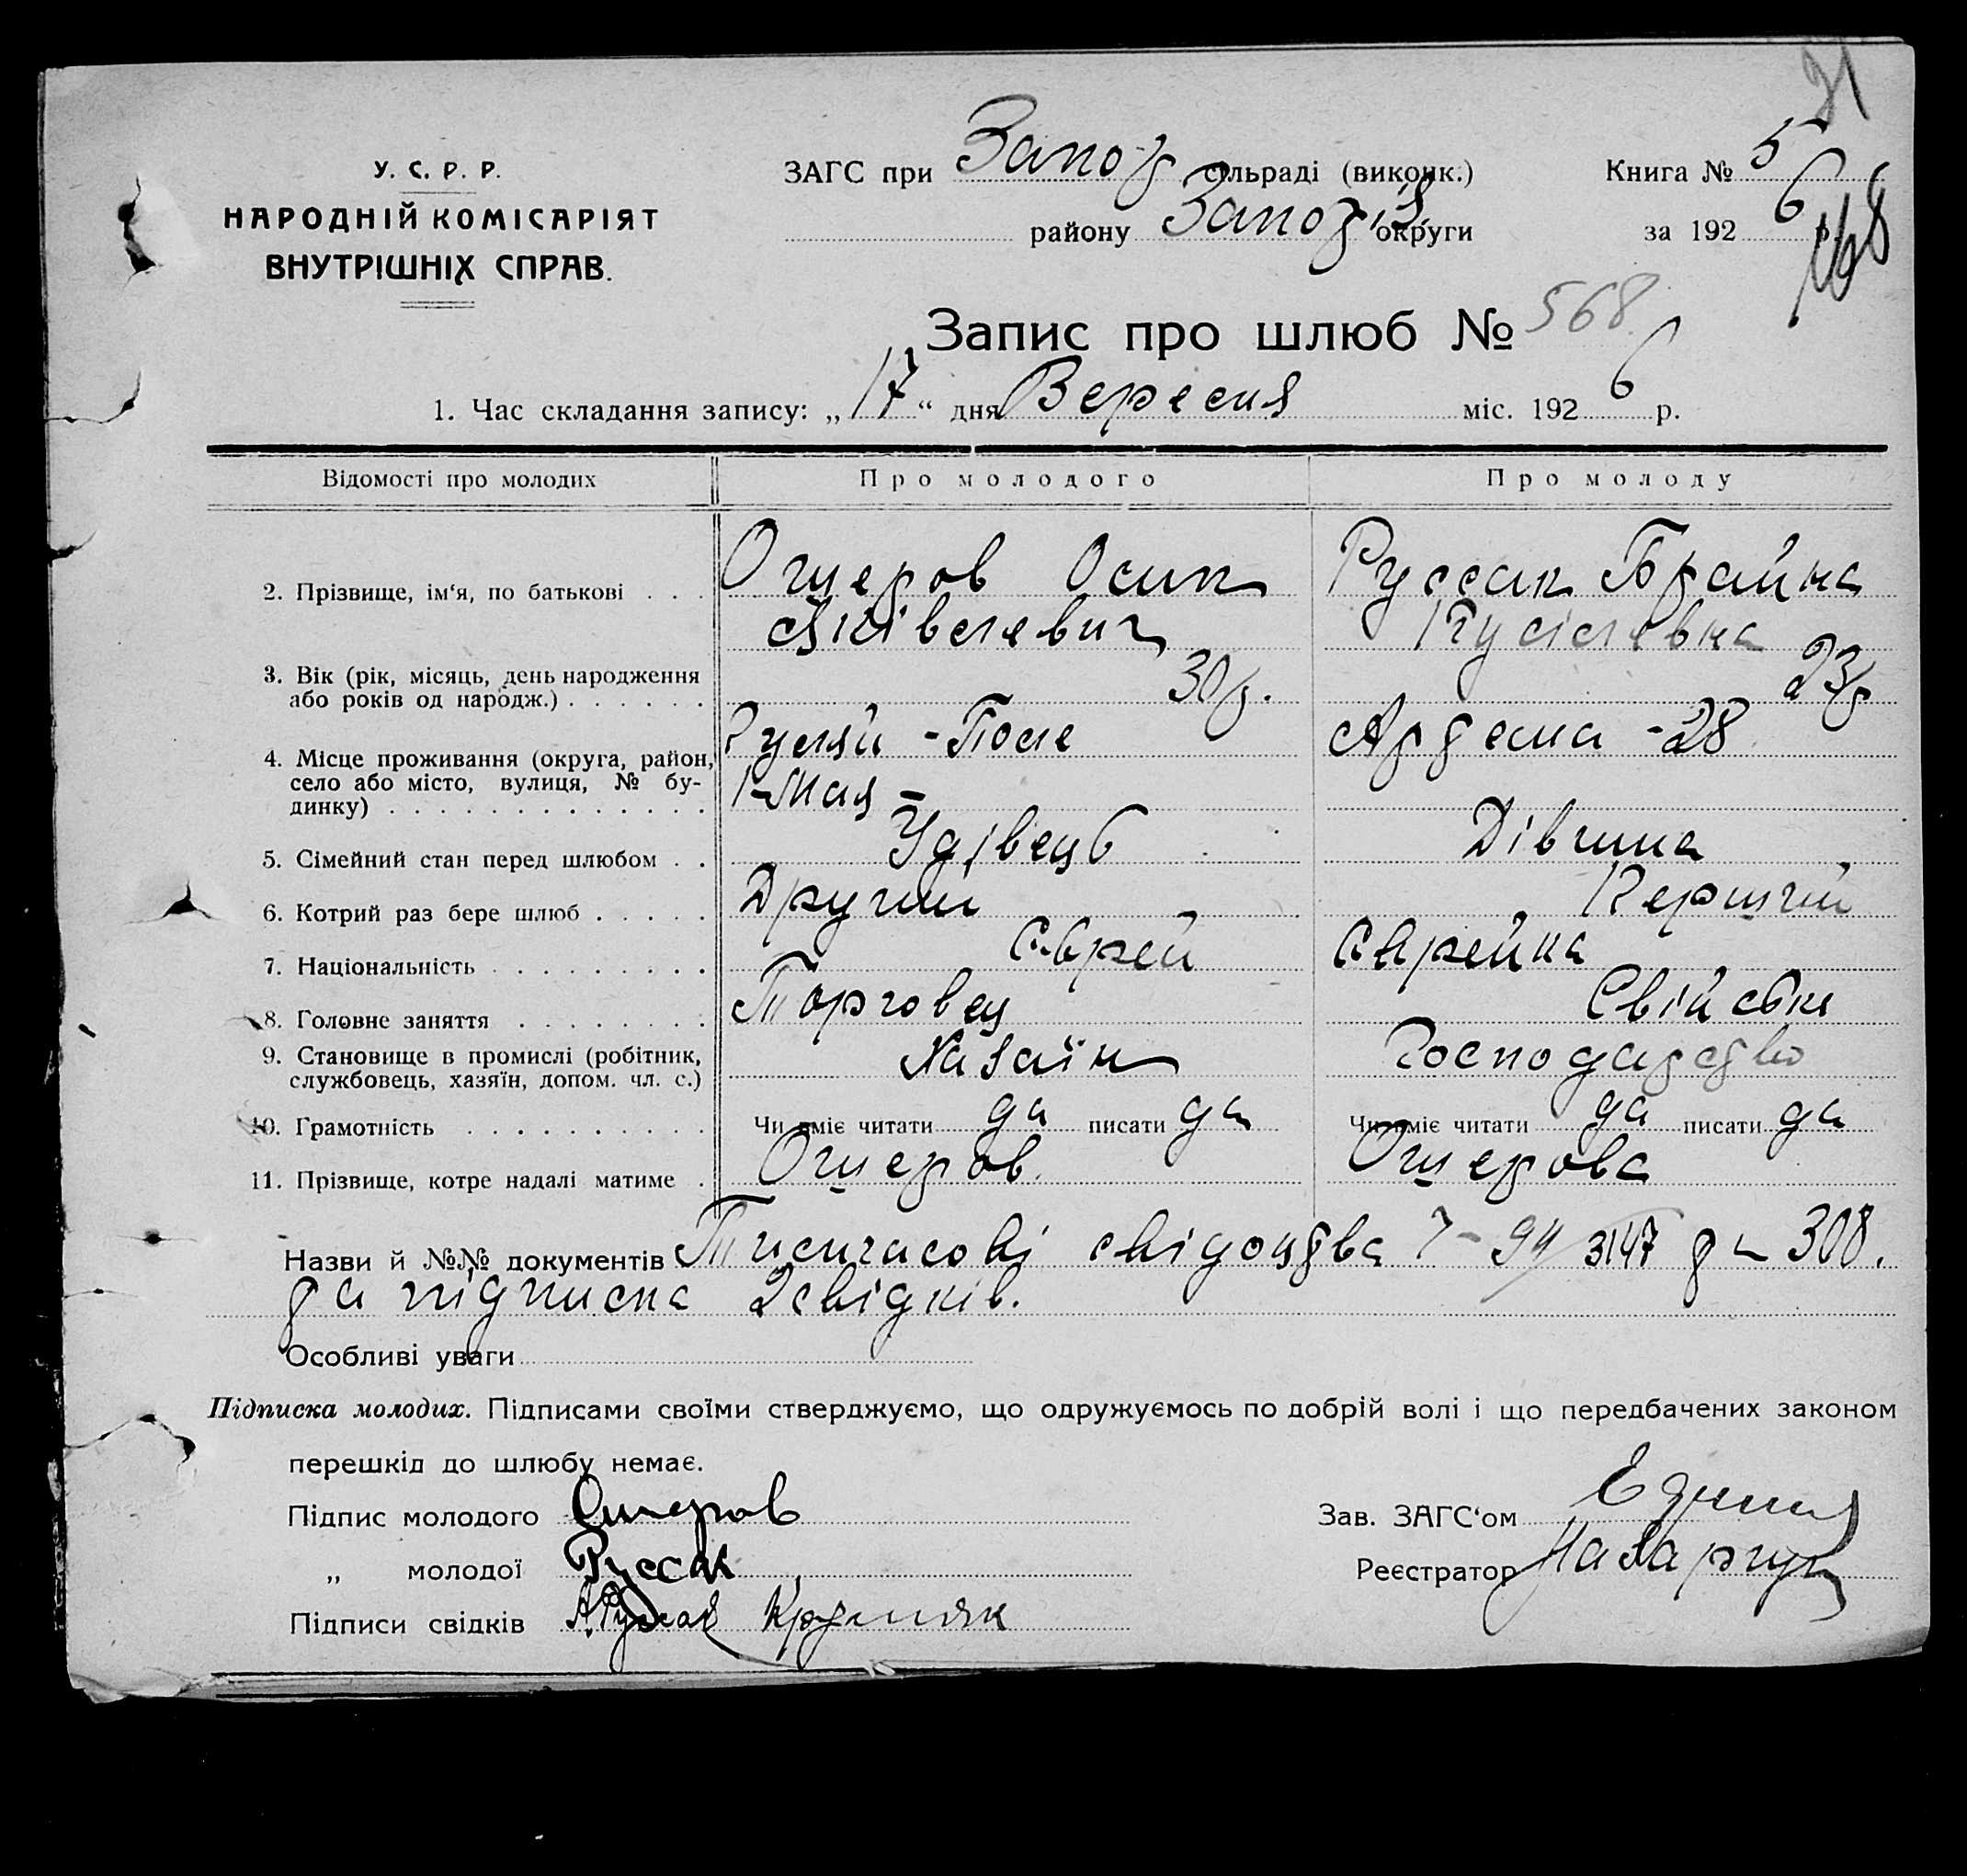 21
У. С. Р. Р.
НАРОДНІЙ КОМІСАРІЯТ
ВНУТРІШНІХ СПРАВ.
ЗАГС при Запоз сільраді (виконк.)
району Запоз округи
Книга № 5
за 192 6 р.
168
Запис про шлюб № 568
1. Час складання запису: „ 17 “ дня Вересня міс. 192 6 р.
Відомості про молодих Про молодого Про молоду
2. Прізвище, ім‘я, по батькові . . . Ошеров Осип Руссак Брайна
Аківелевич Нусілевна
3. Вік (рік, місяць, день народження 30 р. 23 р
або років од народж.) . . . . . .
4. Місце проживання (округа, район, Гуляй-Поле Артема - 28
село або місто, вулиця, № бу- 1-Мая -
динку) . . . . . . . . . . . . .
5. Сімейний стан перед шлюбом . . Удівець Дівчина
6. Котрий раз бере шлюб . . . . . Другий Перший
7. Національність . . . . . . . . . Єврей Єврейка
8. Головне заняття . . . . . . . . Торговец Свійське
9. Становище в промислі (робітник, Хазаїн Господарство
службовець, хазяїн, допом. чл. с.)
10. Грамотність . . . . . . . . . . Чи вміє читати да писати да Чи вміє читати да писати да
11. Прізвище, котре надалі матиме . Ошеров Ошерова
Назви й №№ документів Тимчасові свідоцтва 94 3147 та 308.
та підписка 2 свідків.
Особливі уваги
Підписка молодих. Підписами своїми стверджуємо, що одружуємось по добрій волі і що передбачених законом
перешкід до шлюбу немає.
Підпис молодого Ошеров
„ молодої Руссак
Підписи свідків А. Руссак
Зав. ЗАГС‘ом
Реєстратор Назарчук